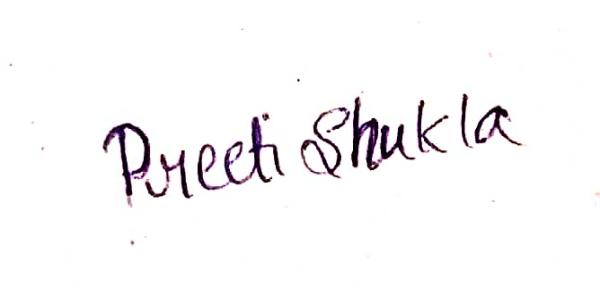 Preeti Shukla